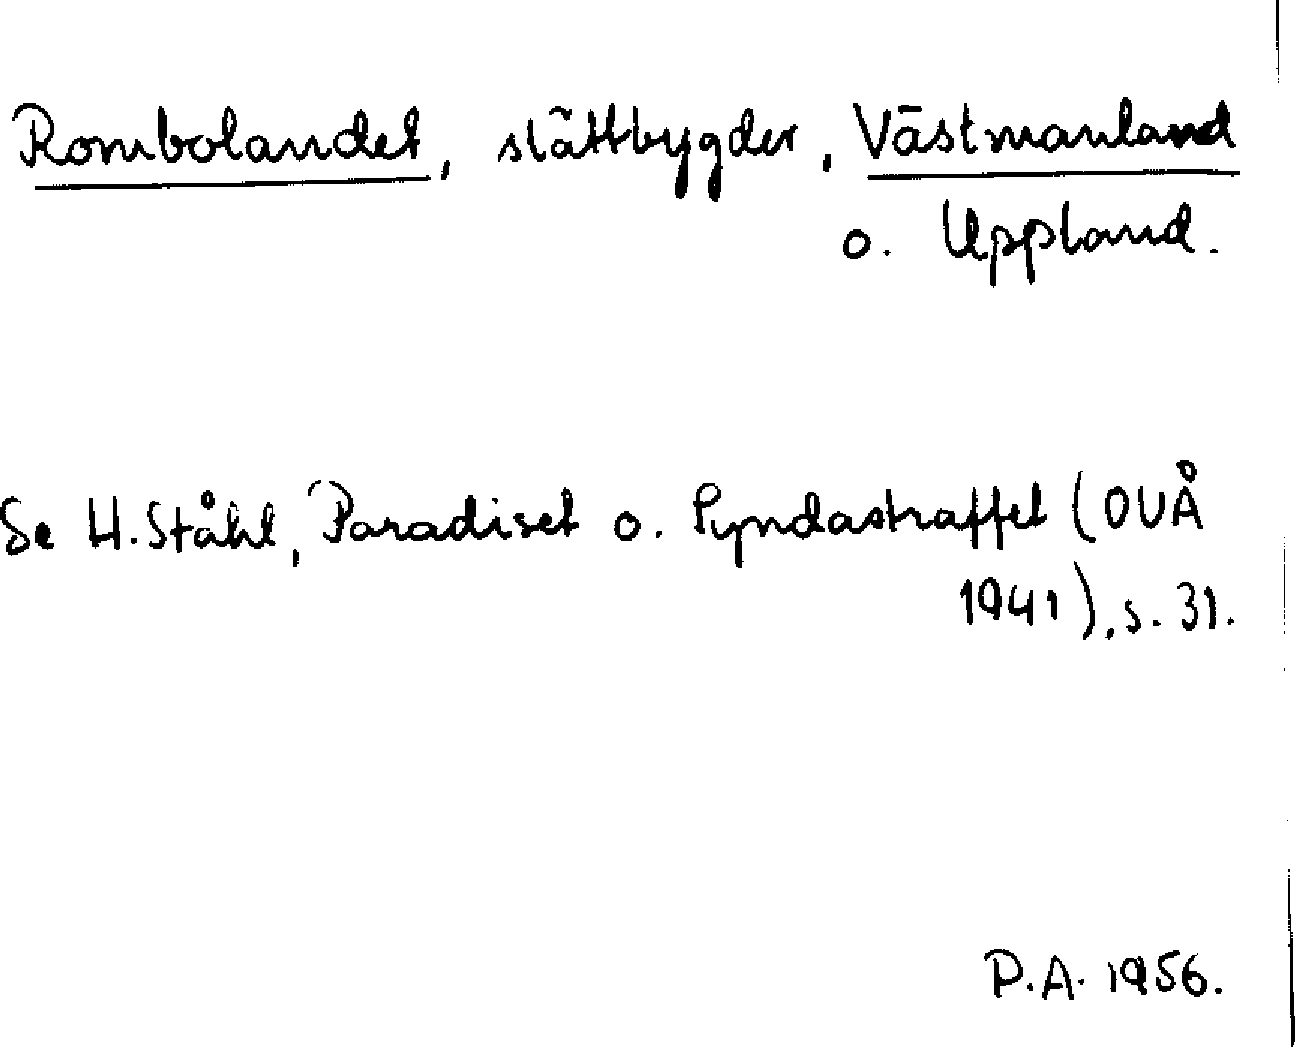 Rombolandet, slättbygder, Västmanland
o. Uppland.
Se H. Ståhl, Paradiset o. Pyndastraffet (OUÅ
1941), s. 31.
P.A. 1956.